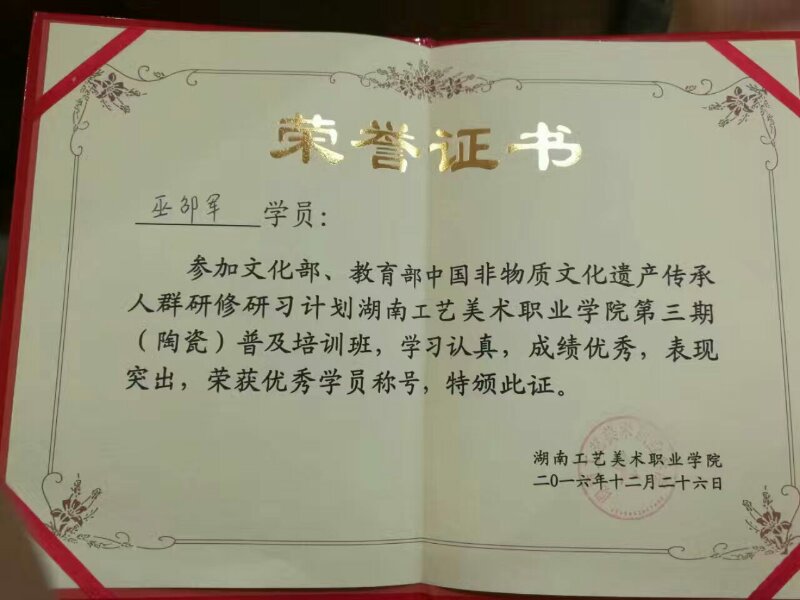 荣誉证书
巫邵军 学员:
参加文化部、教育部中国非物质文化遗产传承
人群研修研习计划湖南工艺美术职业学院第三期
（陶瓷）普及培训班，学习认真，成绩优秀，表现
突出，荣获优秀学员称号，特颁此证。
湖南工艺美术职业学院
二〇一六年十二月二十六日